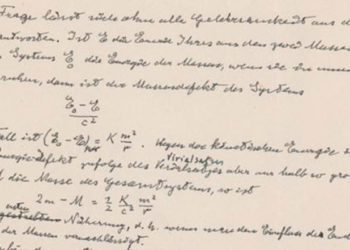 Frage lässt sich ohne alle Gelehrsamkeit aus d
antworten. Ist E die Energie Ihres aus den zwei Massen
Systems E₀ die Energie der Massen, wenn sie
ruhen, dann ist der Massendefekt des Systems
E₀ - E
c²
Fall ist (E₀ - E) = K m²/r . Wegen der kinetischen Energie
Virialsatzes
Energiedefekt zufolge des aber nur halb so gross
M die Masse des Gesamtsystems, so ist
2m - M = 1/2 K/c² m²/r
Näherung, d. h. wenn man den Einfluss der
der Massen vernachlässigt.